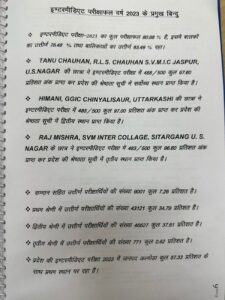 इण्टरमीडिएट परीक्षाफल वर्ष 2023 के प्रमुख बिन्दु
❖ इण्टरमीडिएट परीक्षा-2023 का कुल परीक्षाफल 80.98 % है, इसमें बालकों
का उत्तीर्ण 78.48 % तथा बालिकाओं का 83.49 % रहा।
❖ TANU CHAUHAN, R.L.S. CHAUHAN S.V.M.I.C JASPUR,
U.S.NAGAR की छात्रा ने इण्टरमीडिएट परीक्षा में 488/500 97.60
प्रतिशत अंक प्राप्त कर प्रदेश की श्रेष्ठता सूची में सर्वोच्च स्थान प्राप्त किया है।
❖ HIMANI, GGIC CHINYALISAUR, UTTARKASHI की छात्रा ने इण्टरमीडिएट
परीक्षा में 485/500 कुल 97.00 प्रतिशत अंक प्राप्त कर प्रदेश
की श्रेष्ठता सूची में द्वितीय स्थान प्राप्त किया है।
❖ RAJ MISHRA, SVM INTER COLLAGE, SITARGANG U. S.
NAGAR के छात्र ने इण्टरमीडिएट परीक्षा में कुल 96.60 प्रतिशत अंक
प्राप्त कर प्रदेश की श्रेष्ठता सूची में तृतीय स्थान प्राप्त किया है।
❖ सम्मान सहित उत्तीर्ण परीक्षार्थियों की संख्या कुल 7.26 प्रतिशत है।
❖ प्रथम श्रेणी में उत्तीर्ण परीक्षार्थियों की संख्या 43121 कुल 34.79 प्रतिशत है।
❖ द्वितीय श्रेणी में उत्तीर्ण परीक्षार्थियों की संख्या कुल 37.61 प्रतिशत है।
❖ तृतीय श्रेणी में उत्तीर्ण परीक्षार्थियों की संख्या 771 कुल 0.62 प्रतिशत है।
❖ प्रदेश की इण्टरमीडिएट परीक्षा 2023 में जनपद कुल 87.33 प्रतिशत
के साथ प्रथम स्थान पर रहा है।